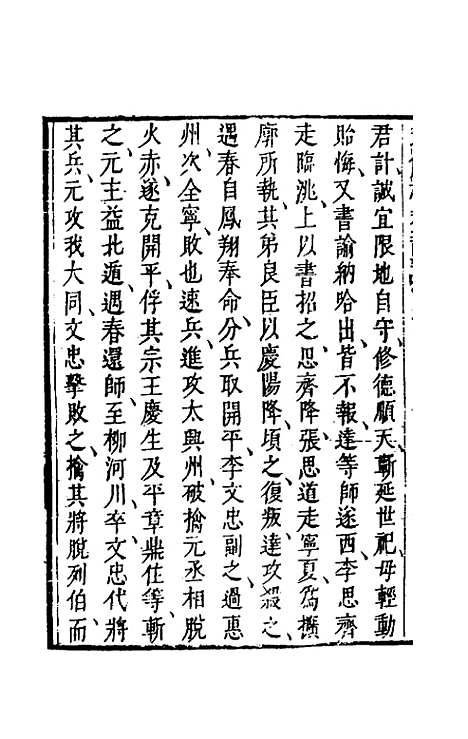 君計誠宜限地自守修德順天斬延世祀毋輕動
貽悔又書諭納哈出皆不報達等師遂西李思齊
走臨洮上以書招之思齊降張思道走寧夏為擴
廓所執其弟良臣以慶陽降頃之復叛達攻殺之
遇春自鳳翔奉命分兵取開平李文忠副之過惠
州次全寧敗也速兵進攻太興州破擒元丞相脫
火赤遂克開平俘其宗王慶生及平章鼎住等斬
之元主益北遁遇春還師至柳河川卒文忠代將
其兵元攻我大同文忠擊敗之擒其將脫列伯而